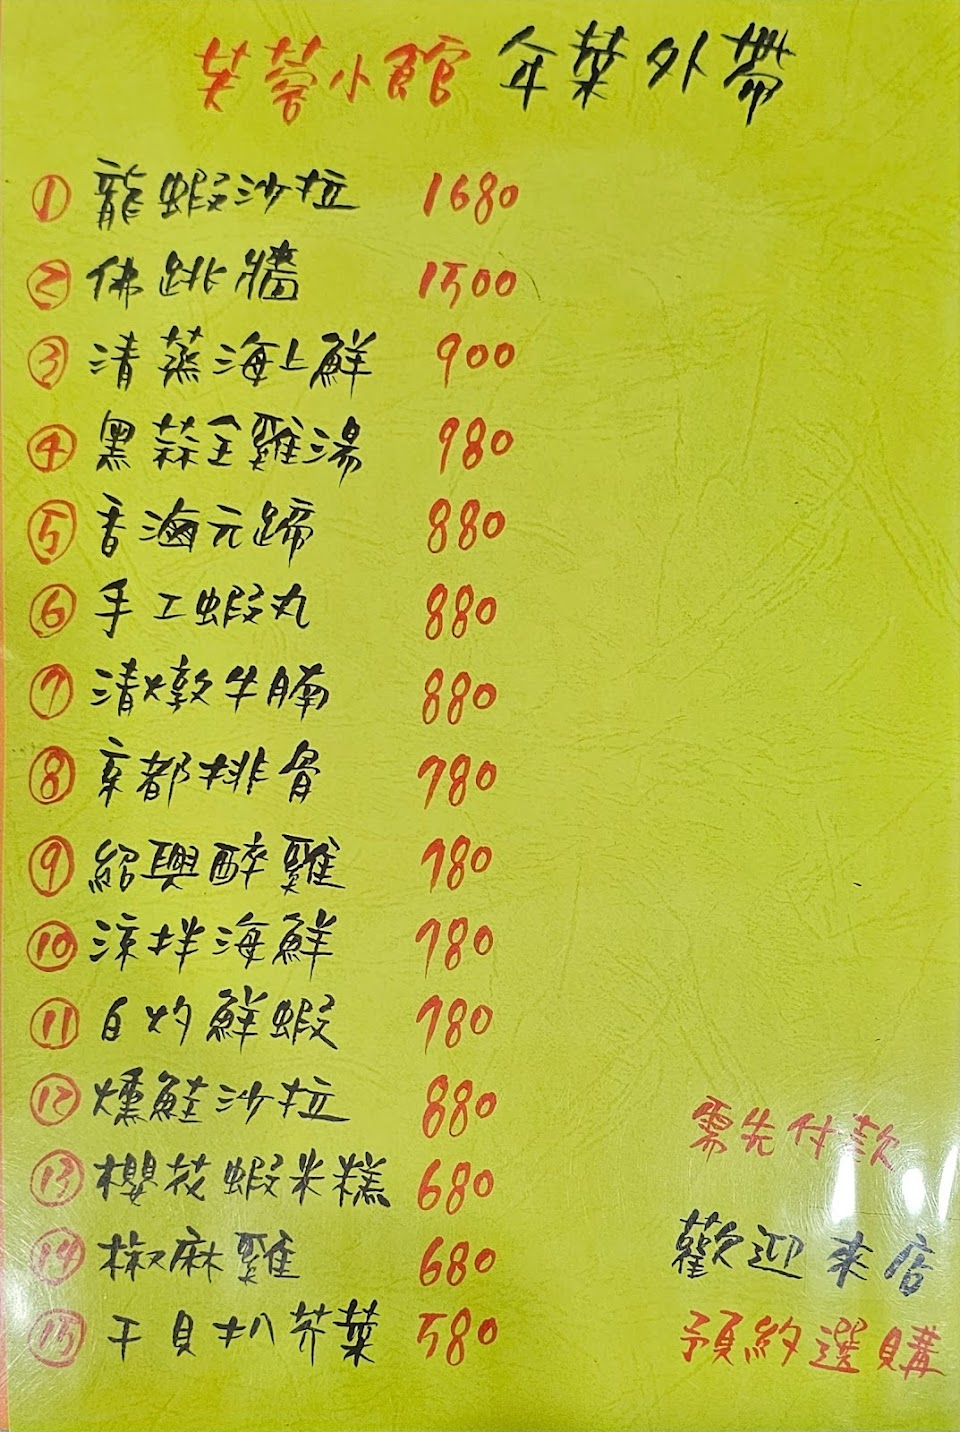 芙蓉小館 年菜外帶
① 龍蝦沙拉 1680
② 佛跳牆 1500
③ 清蒸海上鮮 900
④ 黑蒜全雞湯 980
⑤ 香滷元蹄 880
⑥ 手工蝦丸 880
⑦ 清燉牛腩 880
⑧ 京都排骨 780
⑨ 紹興醉雞 780
⑩ 涼拌海鮮 780
⑪ 白灼鮮蝦 780
⑫ 燻鮭沙拉 880
⑬ 櫻花蝦米糕 680
⑭ 椒麻雞 680
⑮ 干貝扒芥菜 580
需先付款
歡迎來店
預約選購